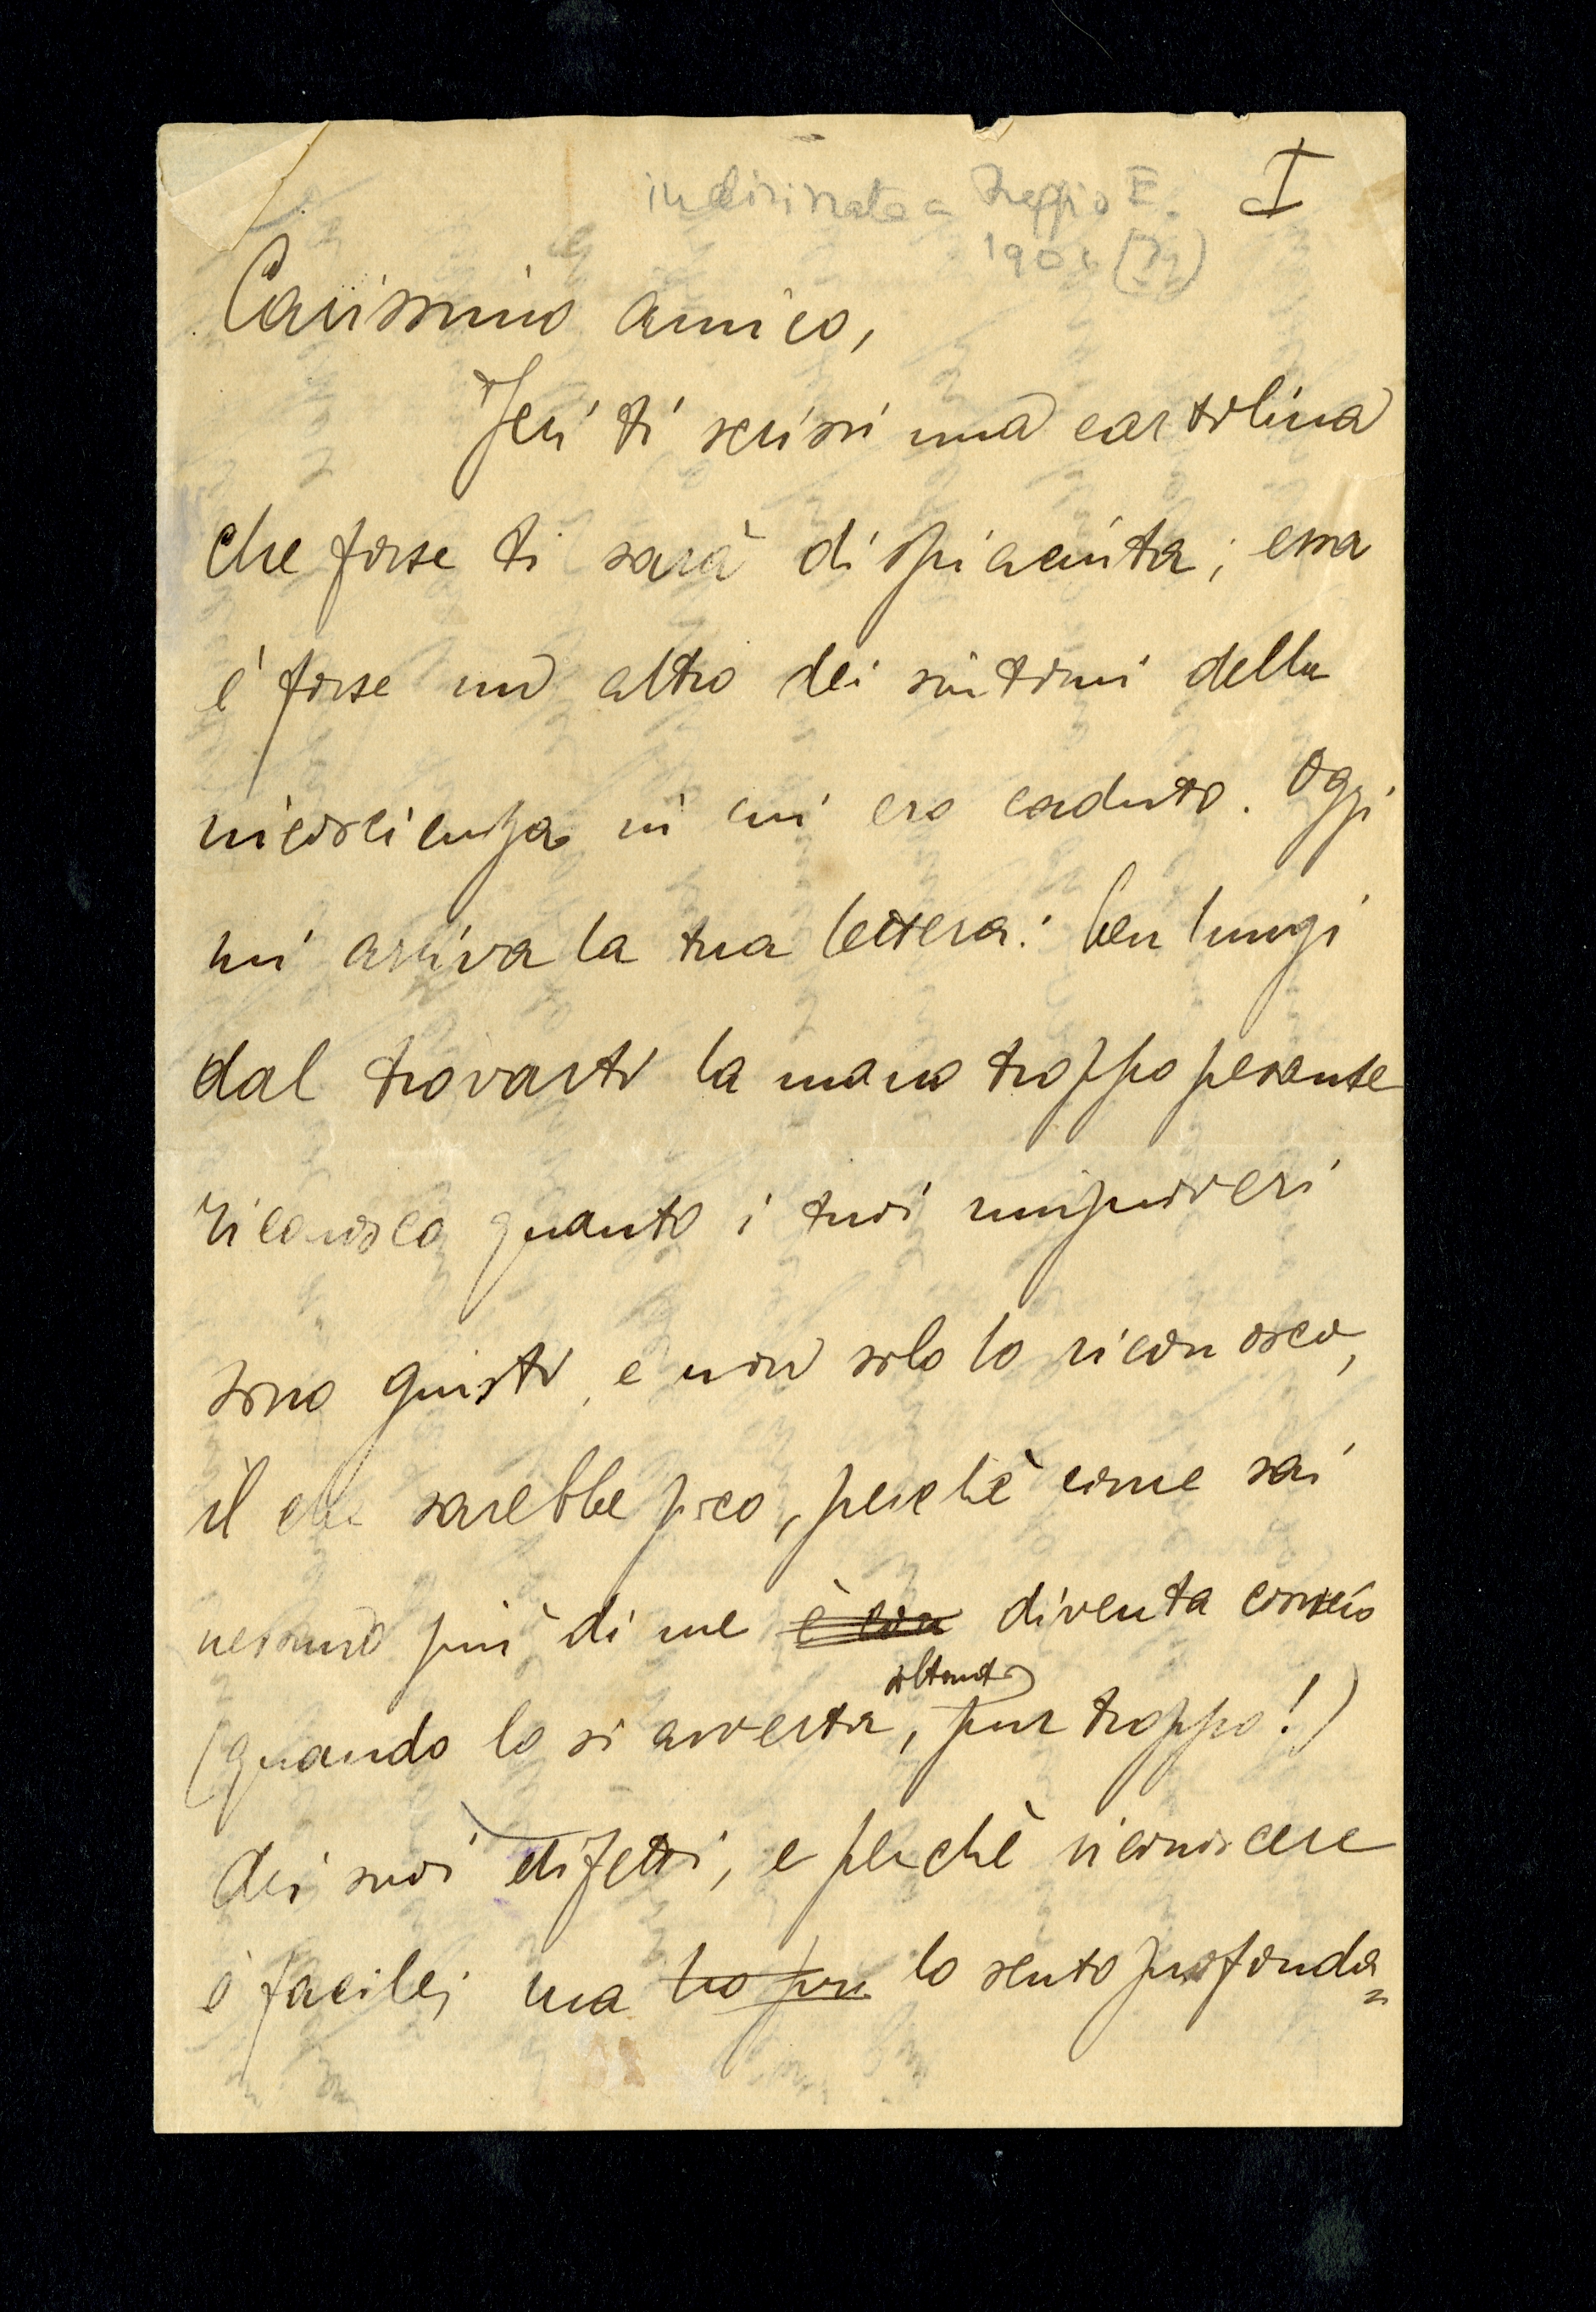 indirizzata a Reggio E.
190
I
Carissimo amico,
Jeri ti scrissi una cartolina
che forse ti sarà dispiaciuta; essa
è forse un altro dei sintomi della
incoscienza in cui ero caduto. Oggi
mi arriva la tua lettera: ben lungi
dal trovarti la mano troppo pesante
riconosco quanto i tuoi rimproveri
sono giusti, e non solo lo riconosco,
il che sarebbe poco, perchè come sai
nessuno più di me è con diventa conscio
soltanto
(quando lo si avverta, pur troppo!)
dei suoi difetti, e perchè riconoscere
è facile; ma lo sento profonda=